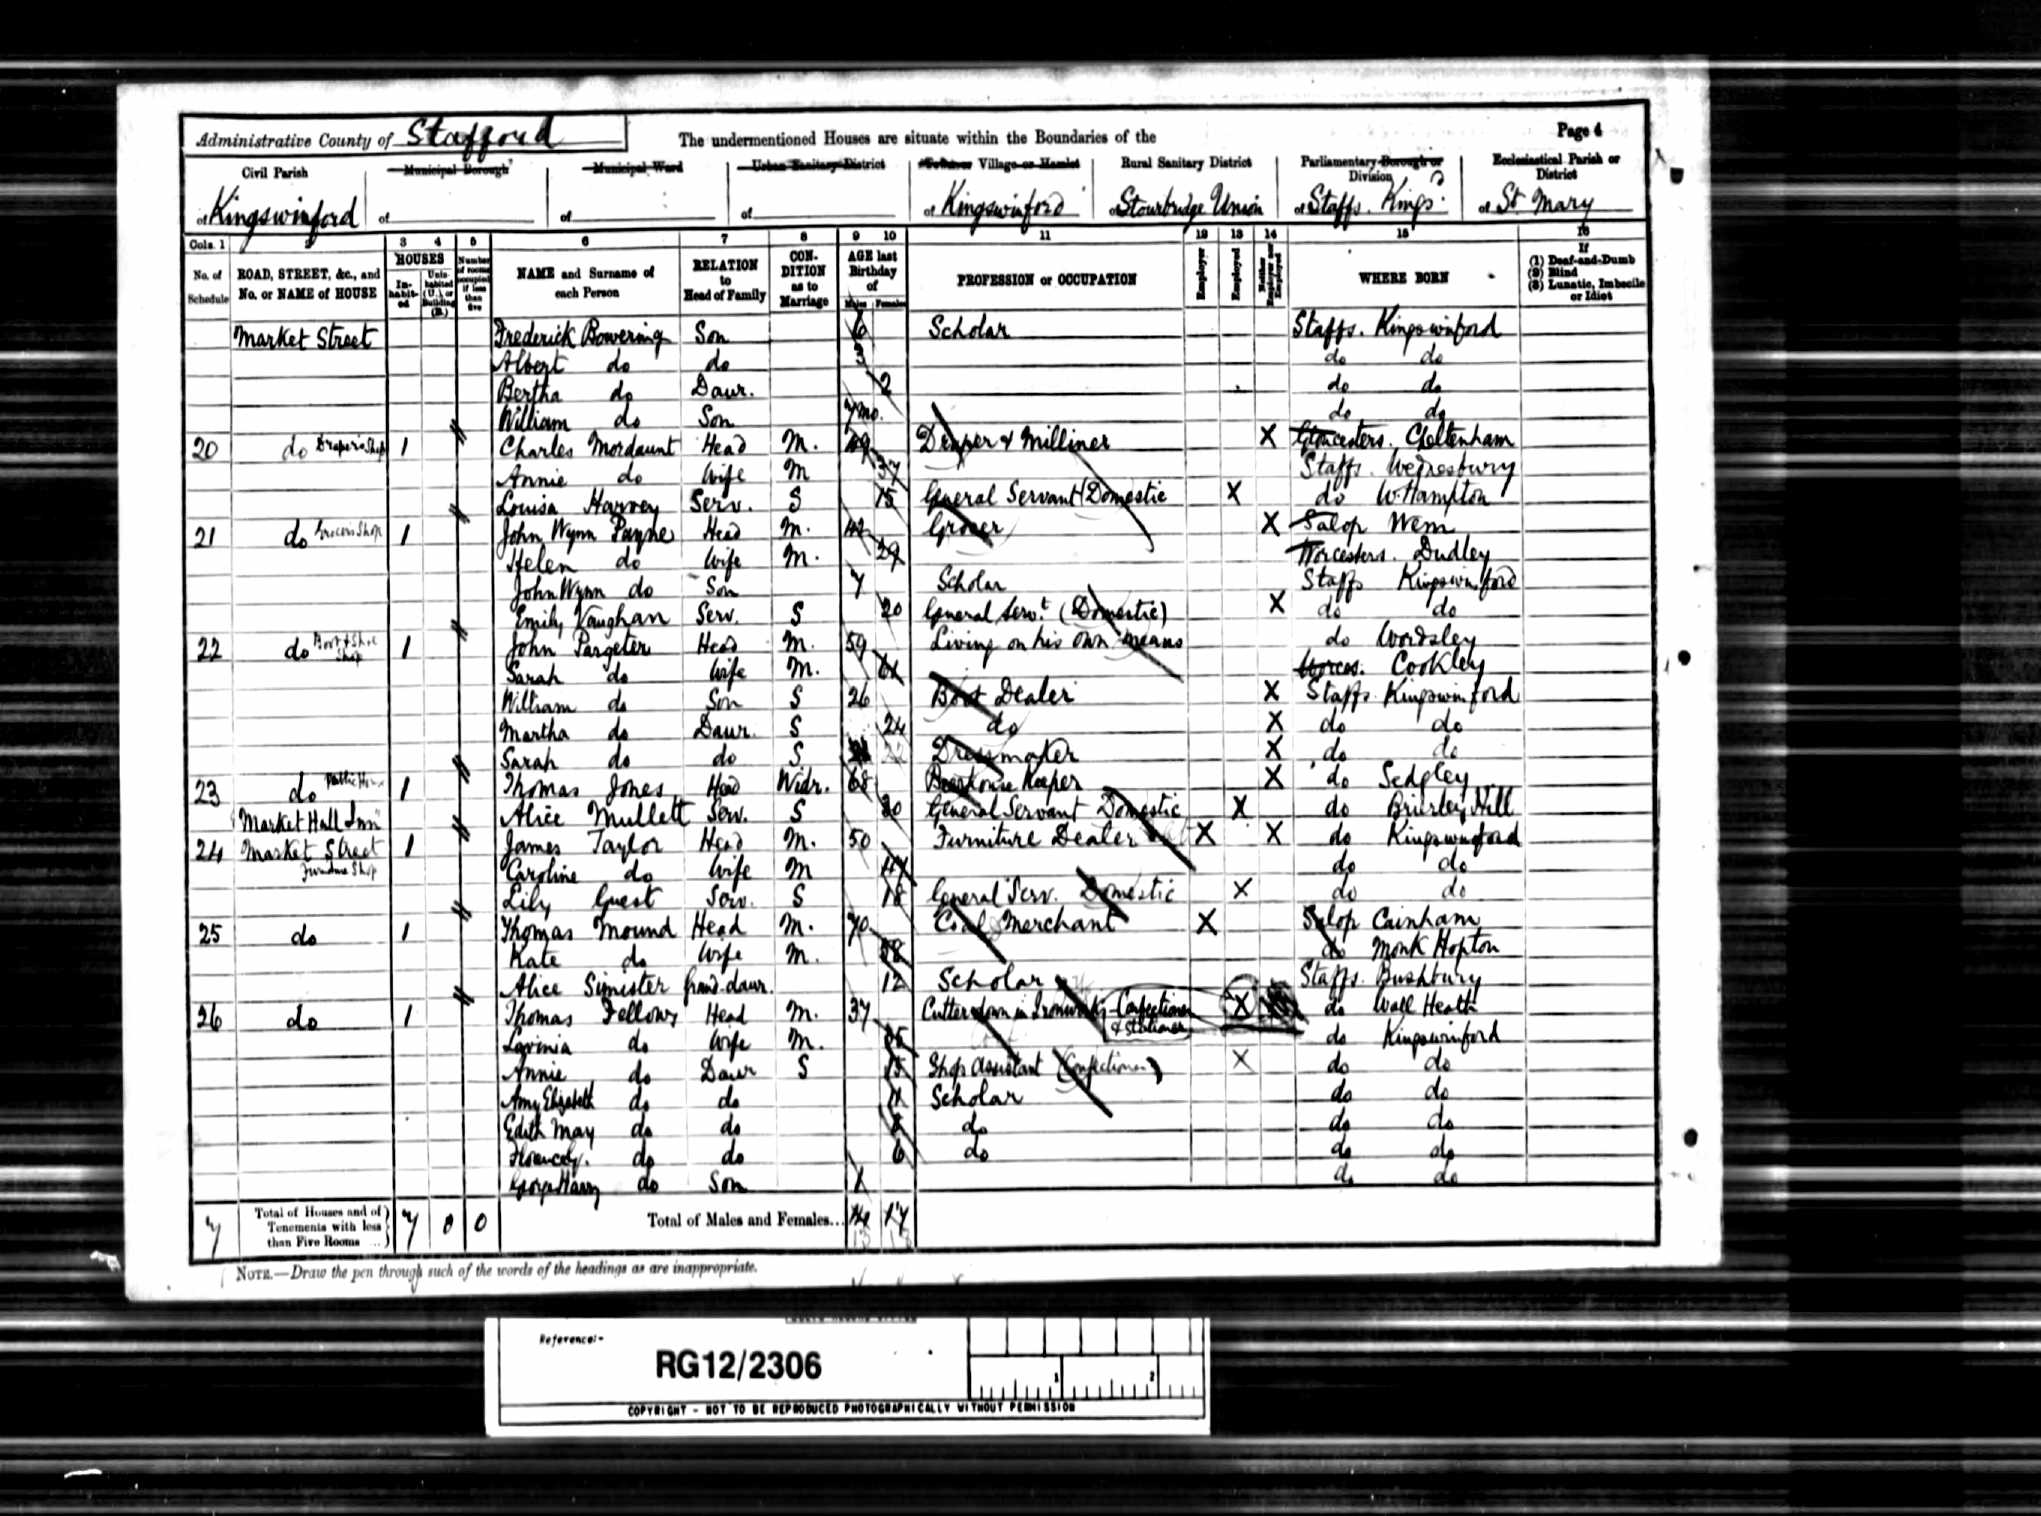 Administrative County of Stafford
The undermentioned Houses are situate within the Boundaries of the
Page 4
Civil Parish of Kingswinford
Municipal Borough of
Municipal Ward of
Urban Sanitary District of
Village or Hamlet of Kingswinford
Rural Sanitary District of Stourbridge Union
Parliamentary Borough or Division of Staffs. Kings
Ecclesiastical Parish or District of St. Mary
Cols. 1 2 3 4 5 6 7 8 9 10 11 12 13 14 15 16
No. of Schedule
ROAD, STREET, &c., and No. or NAME of HOUSE
HOUSES
Inhabited
Uninhabited (U.), or Building (B.)
Number of rooms occupied if less than five
NAME and Surname of each Person
RELATION to Head of Family
CONDITION as to Marriage
AGE last Birthday of
Males Females
PROFESSION or OCCUPATION
Employer
Employed
Neither Employer nor Employed
WHERE BORN
If (1) Deaf-and-Dumb (2) Blind (3) Lunatic, Imbecile or Idiot
Market Street Frederick Bowering Son 6 Scholar Staffs. Kingswinford
Albert do do 3 do do
Bertha do Daur. 2 do do
William do Son 7 mo. do do
20 do Draper's Shop 1 Charles Mordaunt Head M. 49 Draper & Milliner X Gloucesters. Cheltenham
Annie do Wife M 37 Staffs. Wednesbury
Louisa Harvey Serv. S 15 General Servant (Domestic X do W.Hampton
21 do Grocers Shop 1 John Wynn Payne Head M. 42 Grocer X Salop Wem
Helen do Wife M. 29 Worcesters. Dudley
John Wynn do Son 7 Scholar Staffs Kingswinford
Emily Vaughan Serv. S 20 General Servt. (Domestic) X do do
22 do Boot & Shoe Shop 1 John Pargeter Head M. 59 Living on his own means do Wordsley
Sarah do Wife M. 61 Worces. Cookley
William do Son S 26 Boot Dealer X Staffs. Kingswinford
Martha do Daur. S 24 do X do do
Sarah do do S Dressmaker X do do
23 do Public House 1 Thomas Jones Head Widr. 68 Beerhouse Keeper X do Sedgley
Market Hall Inn Alice Mullett Serv. S 20 General Servant Domestic X do Brierley Hill
24 Market Street 1 James Taylor Head M. 50 Furniture Dealer X X do Kingswinford
Furniture Shop Caroline do Wife M 47 do do
Lily Guest Serv. S 18 General Serv. Domestic X do do
25 do 1 Thomas Mound Head M. 70 Coal Merchant X Salop Cainham
Kate do Wife M. 58 do Monk Hopton
Alice Simister Grand-daur. 12 Scholar Staffs. Bushbury
26 do 1 Thomas Fellows Head M. 37 Cutter down in Ironworks Confectioner & Stationer X do Wall Heath
Lavinia do Wife M. 35 do Kingswinford
Annie do Daur S 15 Shop Assistant (Confectioner) X do do
Amy Elizabeth do do 11 Scholar do do
Edith May do do 8 do do do
do do 6 do do do
George Harry do Son 1 do do
7 Total of Houses and of Tenements with less than Five Rooms 7 0 0 Total of Males and Females... 14 17
NOTE.—Draw the pen through such of the words of the headings as are inappropriate.
Reference:-
RG12/2306
1 2
COPYRIGHT - NOT TO BE REPRODUCED PHOTOGRAPHICALLY WITHOUT PERMISSION